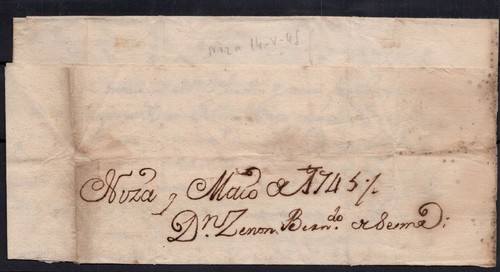 Niza 14-V-45
Nyza y Maio de 1745 %
Dn. Zenon Bern.do de Sema: